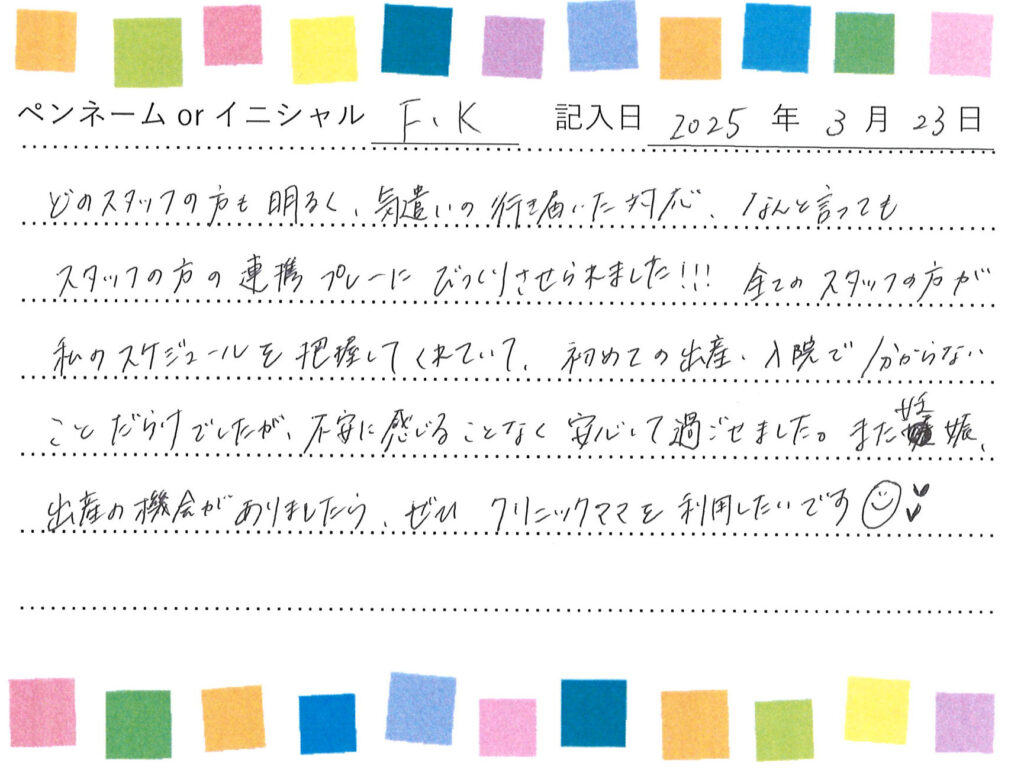 ペンネーム or イニシャル F、K 記入日 2025 年 3 月 23 日
どのスタッフの方も明るく、気遣いの行き届いた対応、なんと言っても
スタッフの方の連携プレーにびっくりさせられました!!! 全てのスタッフの方が
私のスケジュールを把握してくれていて、初めての出産、入院で分からない
ことだらけでしたが、不安に感じることなく安心して過ごせました。また妊娠、
出産の機会がありましたら、ぜひ クリニックママを利用したいです